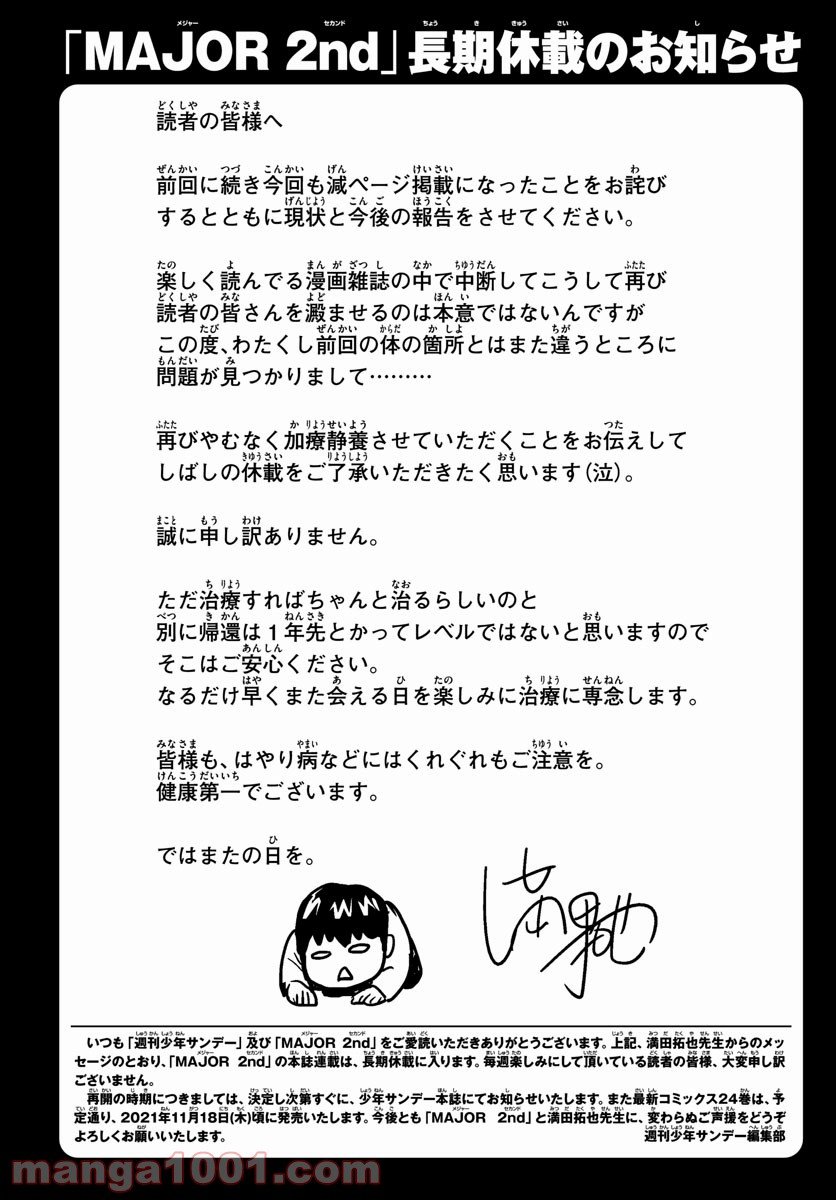 「MAJOR 2nd」長期休載のお知らせ
読者の皆様へ
前回に続き今回も減ページ掲載になったことをお詫び
するとともに現状と今後の報告をさせてください。
楽しく読んでる漫画雑誌の中で中断してこうして再び
読者の皆さんを澱ませるのは本意ではないんですが
この度、わたくし前回の体の箇所とはまた違うところに
問題が見つかりまして………
再びやむなく加療静養させていただくことをお伝えして
しばしの休載をご了承いただきたく思います(泣)。
誠に申し訳ありません。
ただ治療すればちゃんと治るらしいのと
別に帰還は1年先とかってレベルではないと思いますので
そこはご安心ください。
なるだけ早くまた会える日を楽しみに治療に専念します。
皆様も、はやり病などにはくれぐれもご注意を。
健康第一でございます。
ではまたの日を。
いつも「週刊少年サンデー」及び「MAJOR 2nd」をご愛読いただきありがとうございます。上記、満田拓也先生からのメッ
セージのとおり、「MAJOR 2nd」の本誌連載は、長期休載に入ります。毎週楽しみにして頂いている読者の皆様、大変申し訳
ございません。
再開の時期につきましては、決定し次第すぐに、少年サンデー本誌にてお知らせいたします。また最新コミックス24巻は、予
定通り、2021年11月18日(木)頃に発売いたします。今後とも「MAJOR 2nd」と満田拓也先生に、変わらぬご声援をどうぞ
よろしくお願いいたします。
週刊少年サンデー編集部
manga1001.com